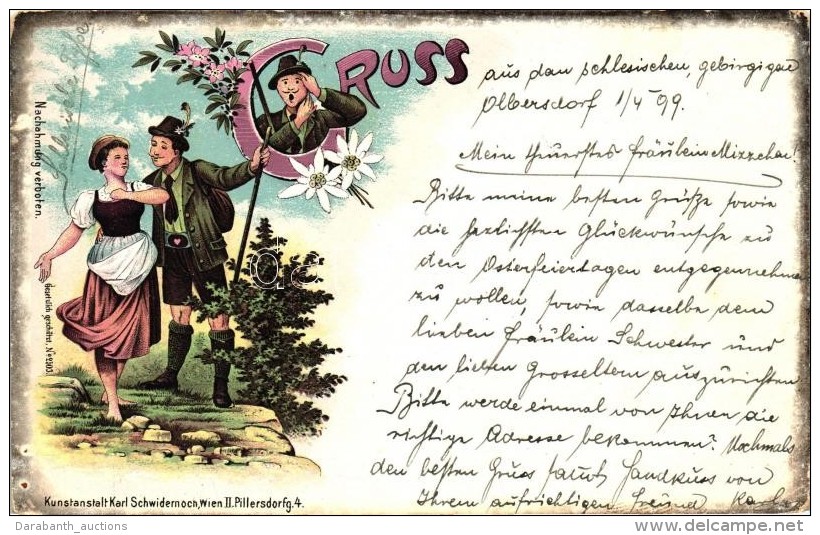 GRUSS
aus dem schlesischen, gebirgigen
Olbersdorf 1/4 99.
Mein theuerstes Fräulein Mizzchen!
Bitte meine besten Grüße sowie
die herzlichsten Glückwünsche zu
den Osterfeiertagen entgegennehmen
zu wollen, sowie dasselbe dem
lieben Fräulein Schwester und
den lieben Grosseltern auszurichten
Bitte werde einmal von Ihnen die
richtige Adresse bekommen? Nochmals
den besten Gruss sammt Handkuss von
Ihrem aufrichtigen Freund Karl
Nachahmung verboten.
Gesetzlich geschützt. No 2903.
Kunstanstalt Karl Schwidernoch, Wien II. Pillersdorfg. 4.
dc
Darabanth_auctions
www.delcampe.net